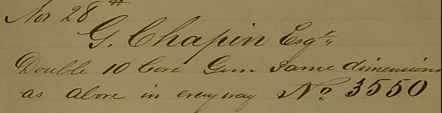 Nov 28th
G. Chapin Esqr
Double 10 bore Gun Same dimensions
as above in every way No 3550